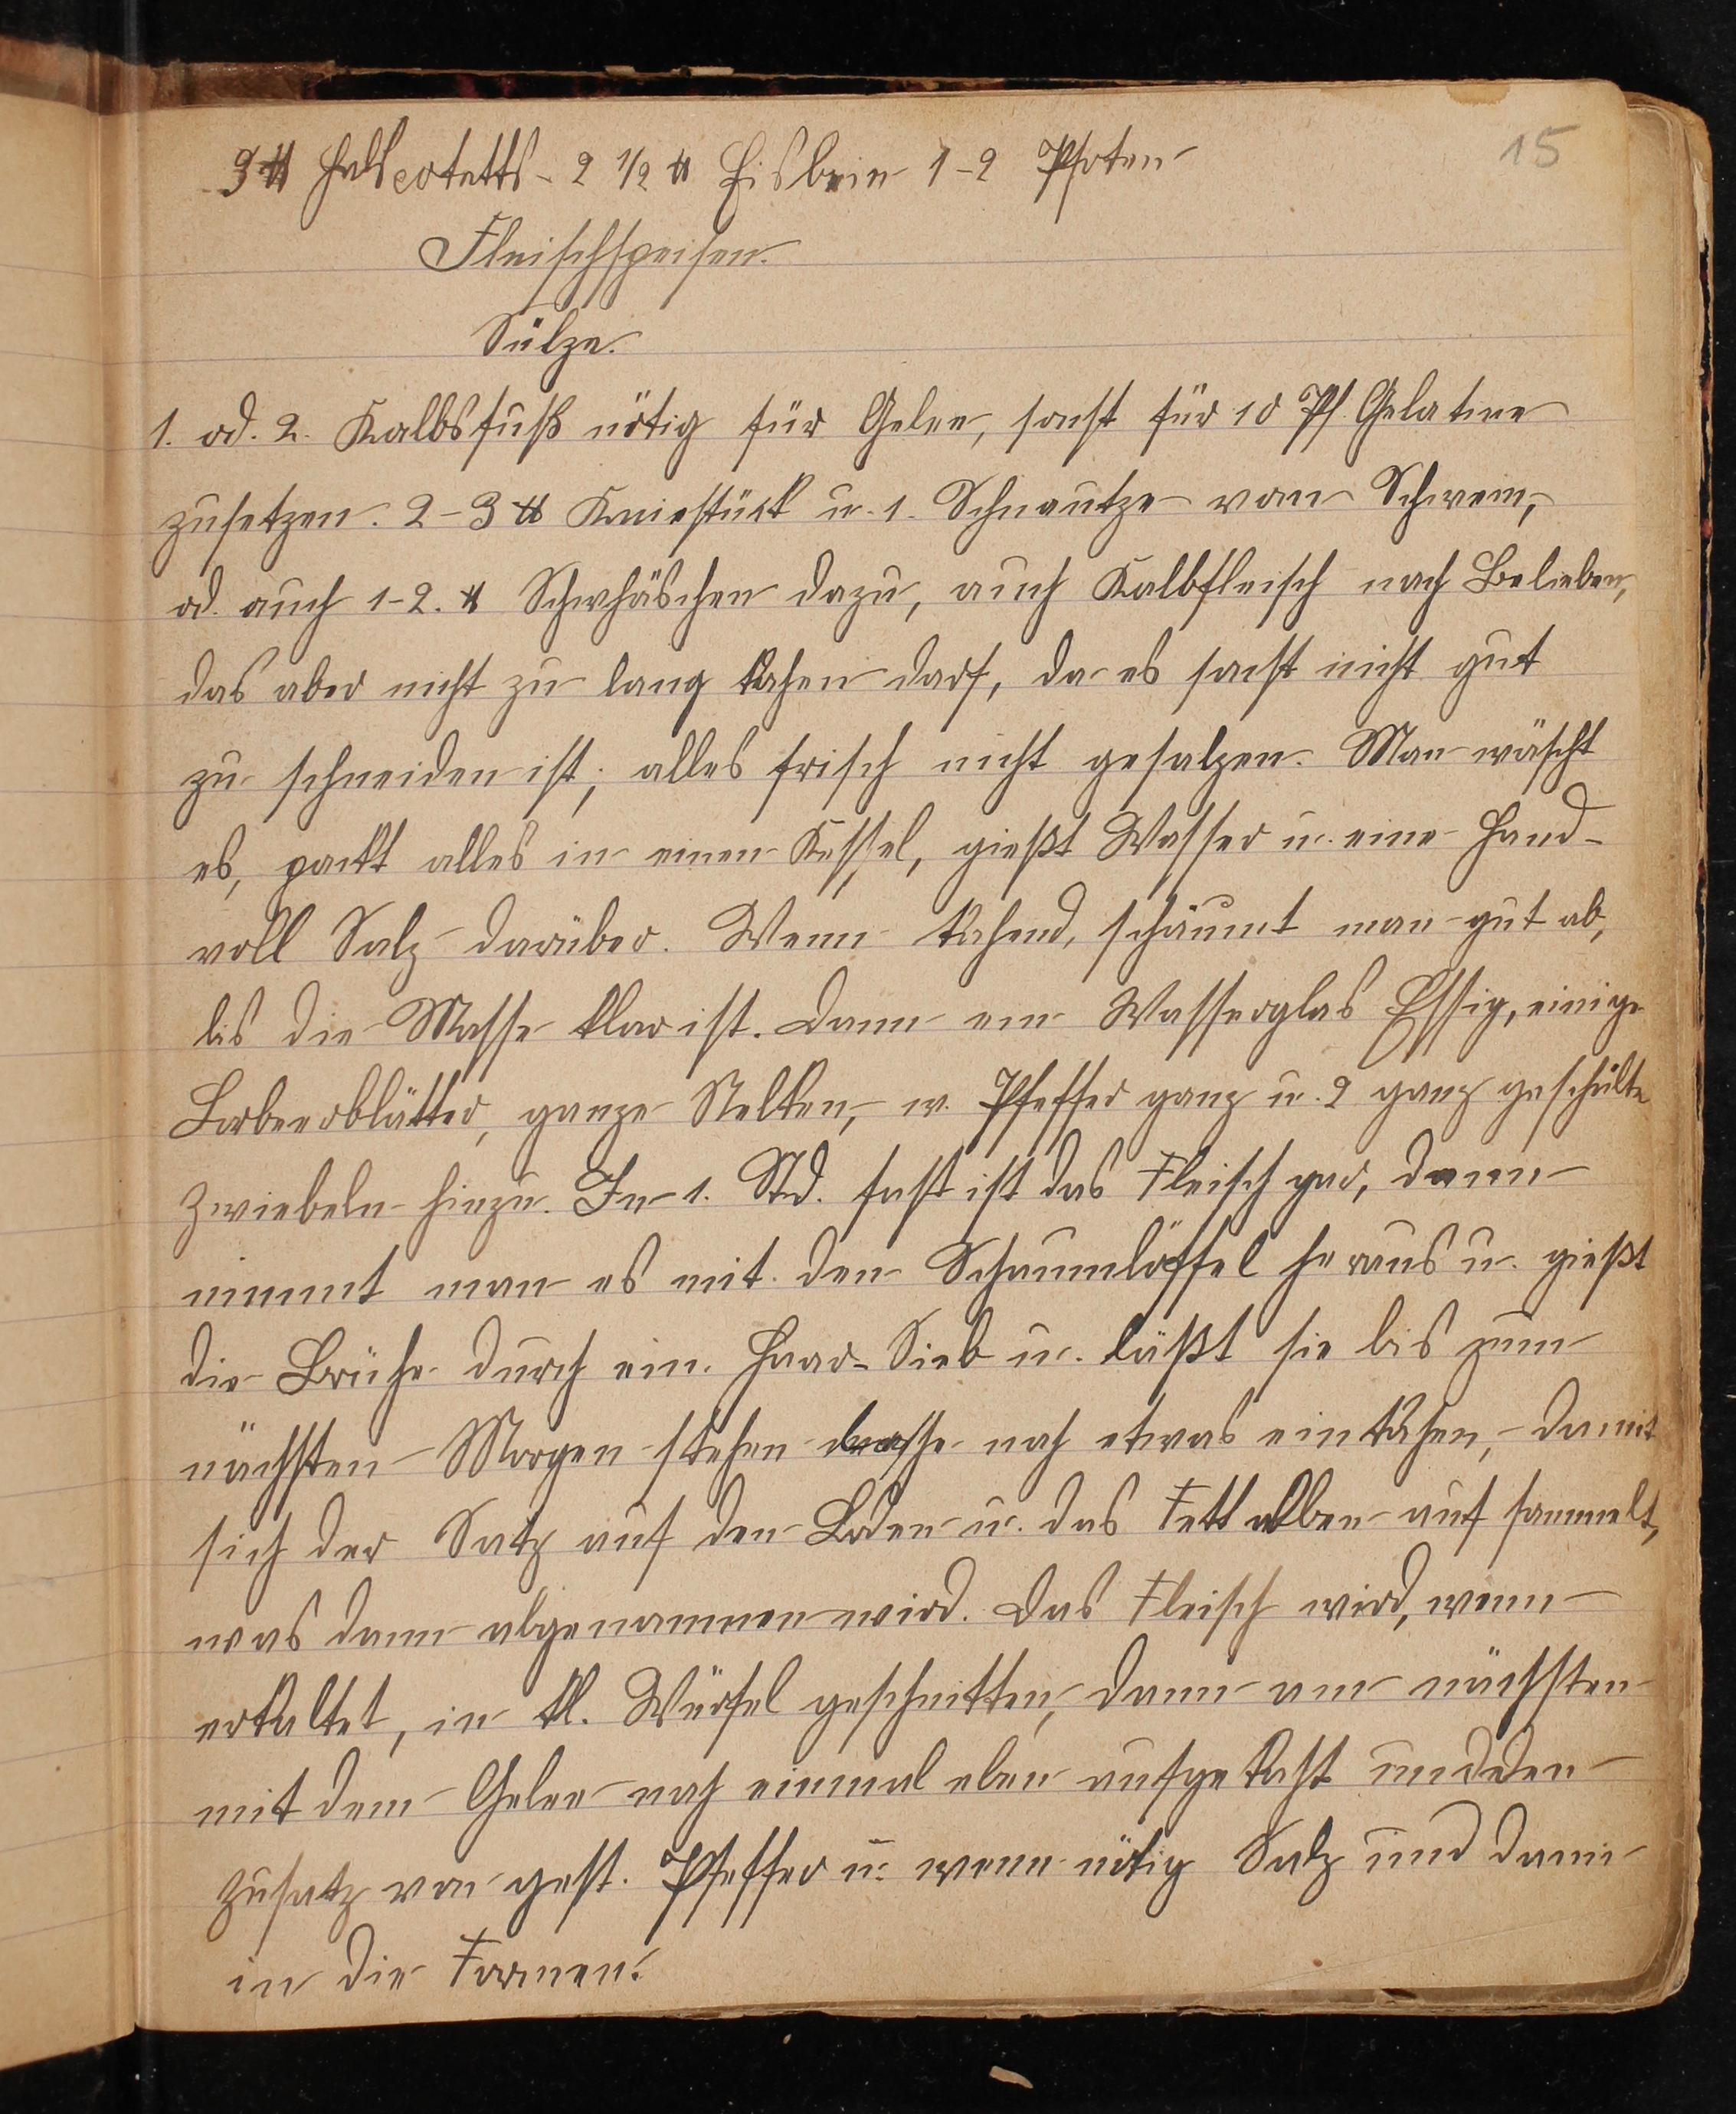 15
3 ℔ Halscotetts - 2 1/2 ℔ Eisbein 1-2 Pfoten
Fleischspeisen.
Sülze.
1. od. 2. Kalbsfuß nötig für Gelee, sonst für 10 Pf. Gelatine
zusetzen. 2-3 ℔ Kniestück u. 1. Schnautze vom Schwein,
od. auch 1-2. ℔ dazu, auch Kalbfleisch nach Belieben,
das aber nicht zu lang kochen darf, da es sonst nicht gut
zu schneiden ist; alles frisch nicht gesalzen. Man wäscht
es, packt alles in einen Kessel, gießt Wasser u. eine Hand-
voll Salz darüber. Wenn kochend, schäumt man gut ab,
bis die Masse klar ist. Dann ein Wasserglas Essig, einige
Lorbeerblätter, ganze Nelken, w. Pfeffer ganz u. 2 ganz geschälte
Zwiebeln hinzu. In 1. Std. fast ist das Fleisch gar, dann
nimmt man es mit den Schaumlöffel heraus u. gießt
die Brühe durch ein. Haar-Sieb u. läßt sie bis zum
nächsten Morgen stehen noch etwas einkochen, damit
sich der Satz auf den Boden u. das Fett oben auf sammelt,
was dann abgenommen wird. Das Fleisch wird, wenn
erkaltet, in kl. Würfel geschnitten, dann am nächsten
mit dem Gelee noch einmal eben aufgekocht und den
Zusatz von gest. Pfeffer u. wenn nötig Salz und dann
in die Formen.